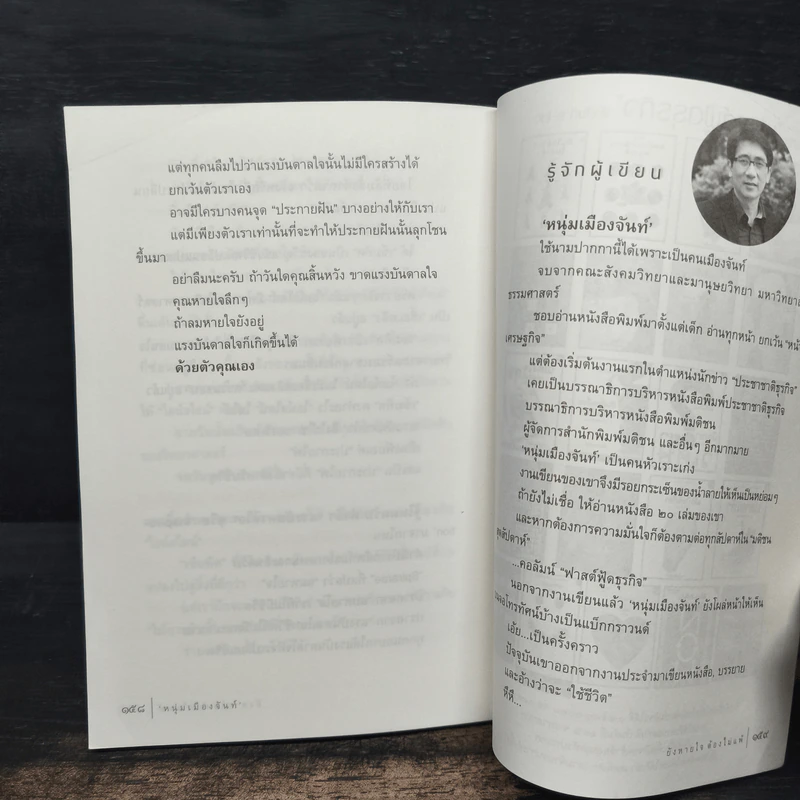 แต่ทุกคนลืมไปว่าแรงบันดาลใจนั้นไม่มีใครสร้างได้
ยกเว้นตัวเราเอง
อาจมีใครบางคนจุด “ประกายฝัน” บางอย่างให้กับเรา
แต่มีเพียงตัวเราเท่านั้นที่จะทำให้ประกายฝันนั้นลุกโชน
ขึ้นมา
อย่าลืมนะครับ ถ้าวันใดคุณสิ้นหวัง ขาดแรงบันดาลใจ
คุณหายใจลึกๆ
ถ้าลมหายใจยังอยู่
แรงบันดาลใจก็เกิดขึ้นได้
ด้วยตัวคุณเอง
๑๕๘ | ‘หนุ่มเมืองจันท์’
รู้จักผู้เขียน
‘หนุ่มเมืองจันท์’
ใช้นามปากกานี้ได้เพราะเป็นคนเมืองจันท์
จบจากคณะสังคมวิทยาและมานุษยวิทยา มหาวิทยาลัย
ธรรมศาสตร์
ชอบอ่านหนังสือพิมพ์มาตั้งแต่เด็ก อ่านทุกหน้า ยกเว้น “หน้า
เศรษฐกิจ”
แต่ต้องเริ่มต้นงานแรกในตำแหน่งนักข่าว “ประชาชาติธุรกิจ”
เคยเป็นบรรณาธิการบริหารหนังสือพิมพ์ประชาชาติธุรกิจ
บรรณาธิการบริหารหนังสือพิมพ์มติชน
ผู้จัดการสำนักพิมพ์มติชน และอื่นๆ อีกมากมาย
‘หนุ่มเมืองจันท์’ เป็นคนหัวเราะเก่ง
งานเขียนของเขาจึงมีรอยกระเซ็นของน้ำลายให้เห็นเป็นหย่อมๆ
ถ้ายังไม่เชื่อ ให้อ่านหนังสือ ๒๐ เล่มของเขา
และหากต้องการความมั่นใจก็ต้องตามต่อทุกสัปดาห์ใน “มติชน
สุดสัปดาห์”
...คอลัมน์ “ฟาสต์ฟู้ดธุรกิจ”
นอกจากงานเขียนแล้ว ‘หนุ่มเมืองจันท์’ ยังโผล่หน้าให้เห็น
โทรทัศน์บ้างเป็นแบ็กกราวนด์
เอ้ย...เป็นครั้งคราว
ปัจจุบันเขาออกจากงานประจำมาเขียนหนังสือ, บรรยาย
และอ้างว่าจะ “ใช้ชีวิต”
หึหึ...
ยังหายใจ ต้องไม่แพ้ | ๑๕๙